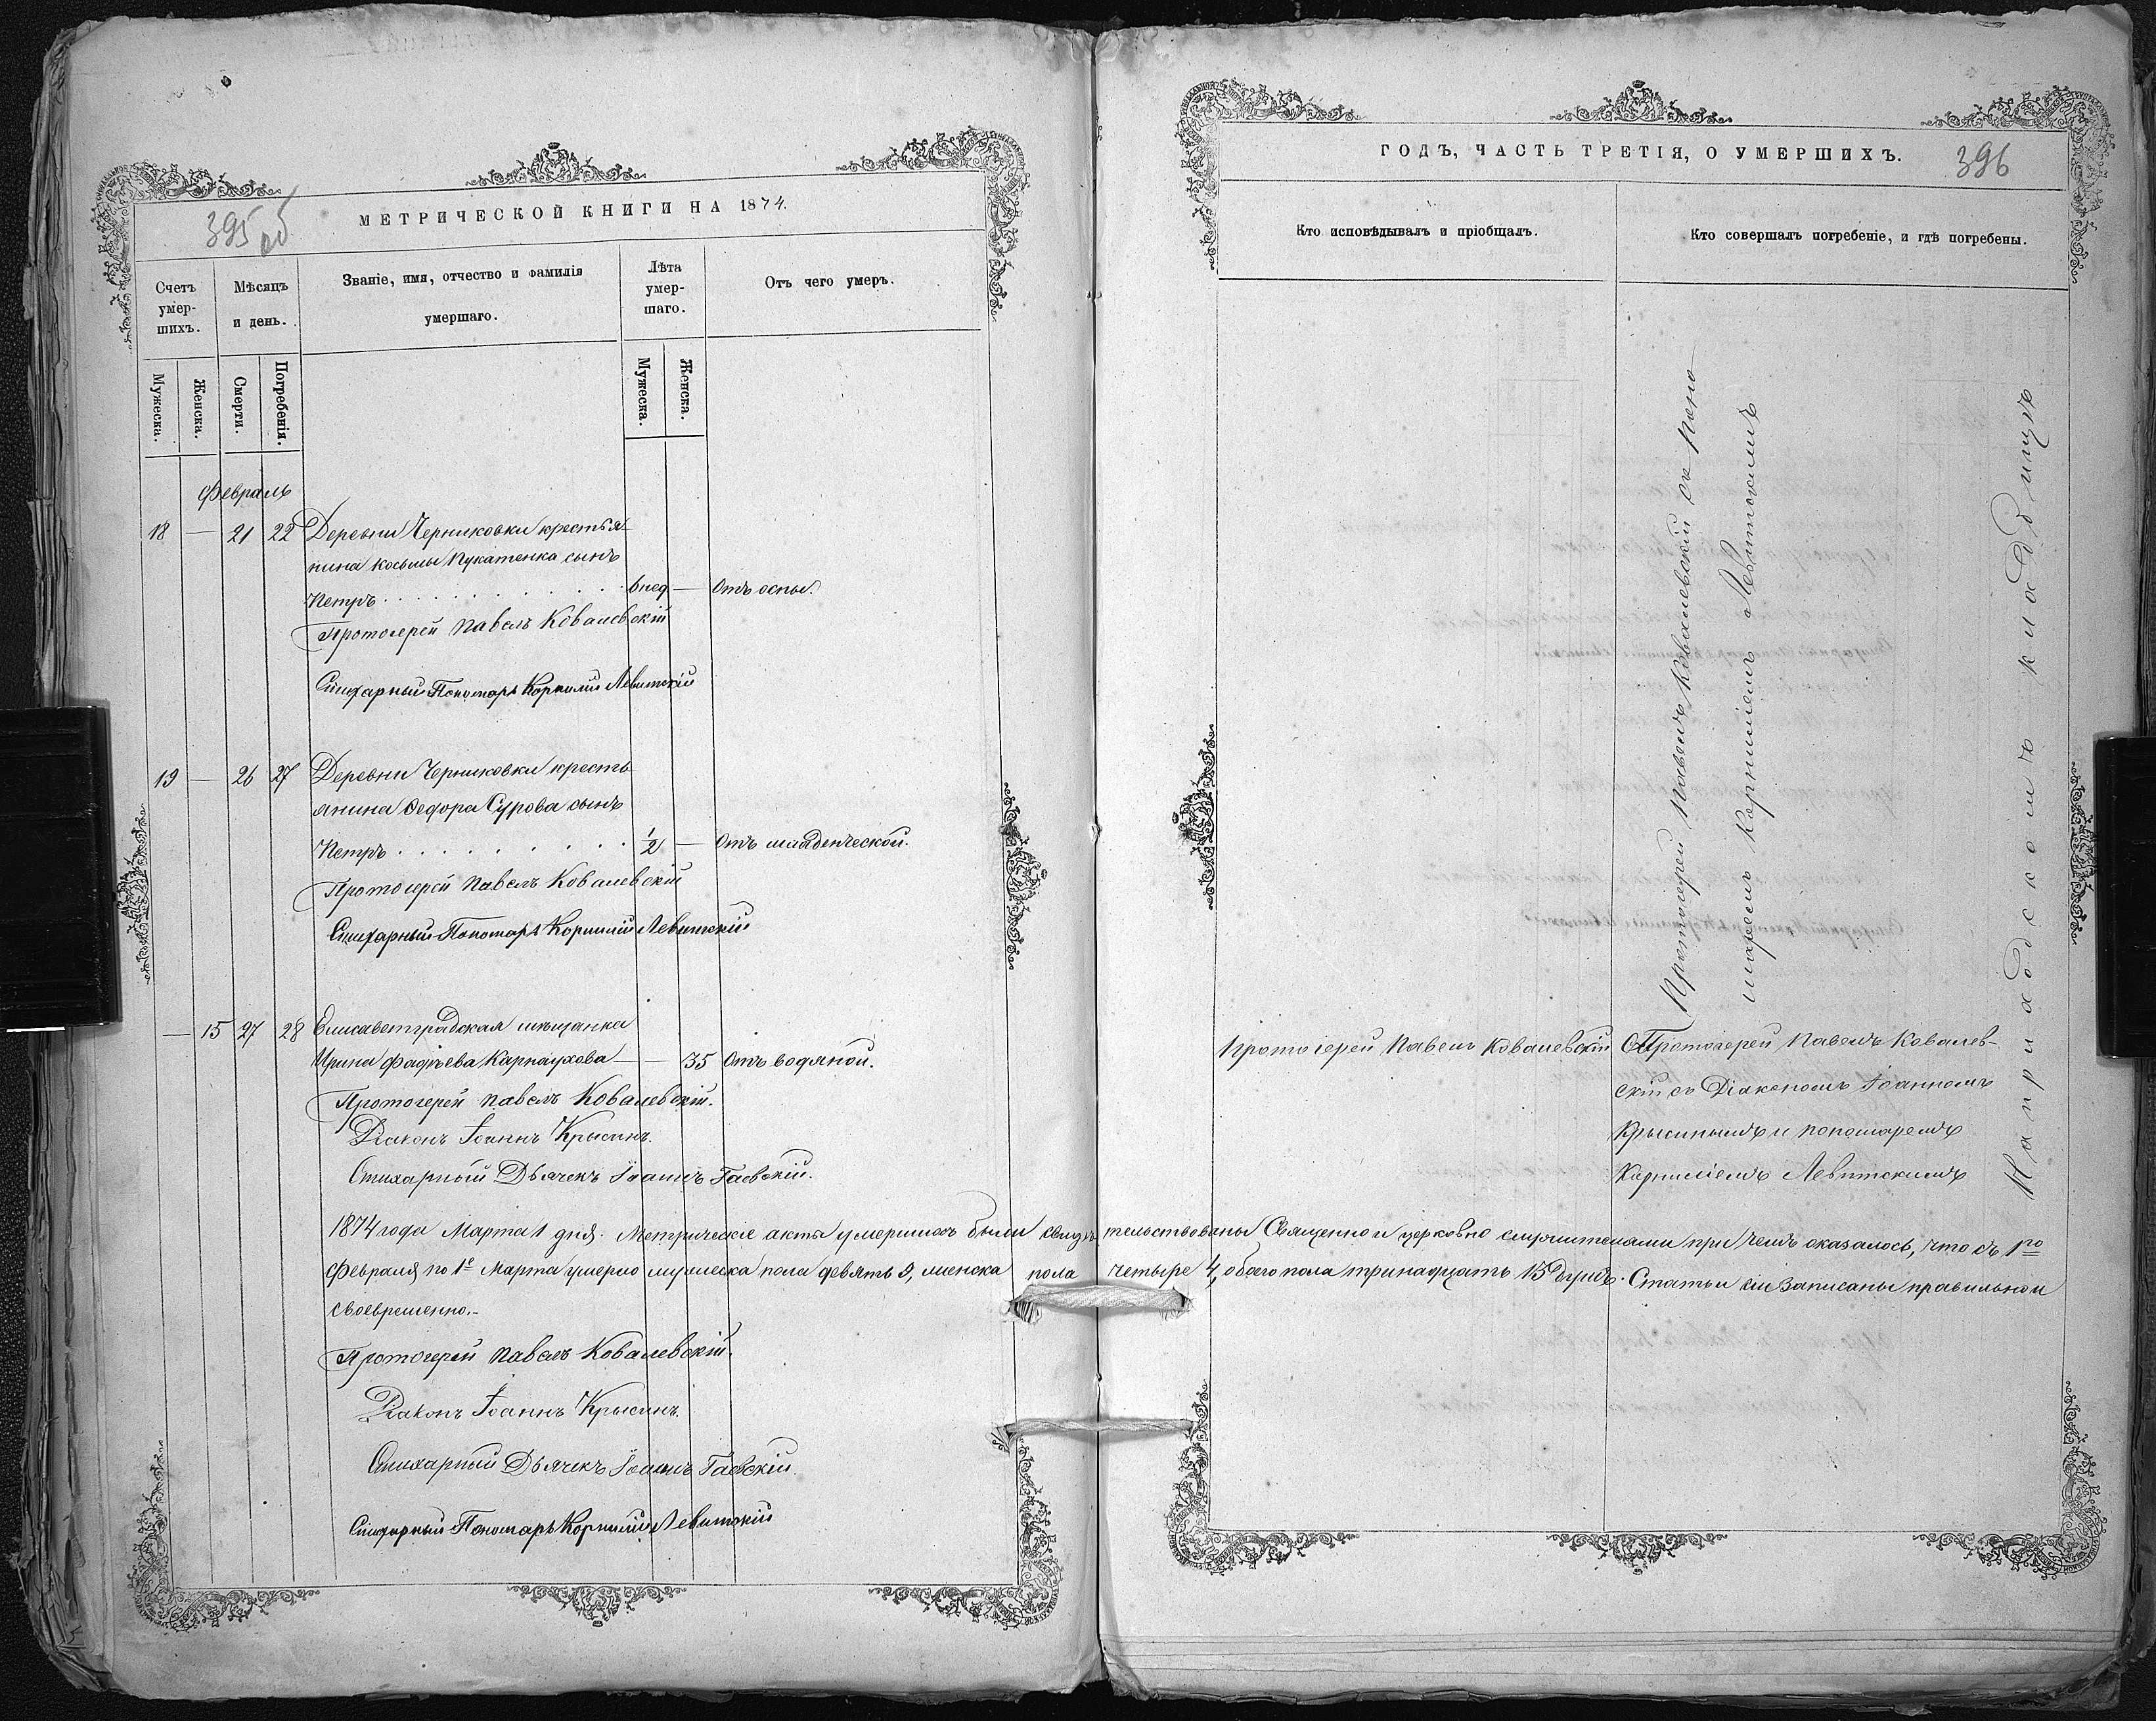 395 об
МЕТРИЧЕСКОЙ КНИГИ НА 1874.
Счетъ умер-шихъ.
Мѣсяцъ и день.
Званіе, имя, отчество и фамилія
умершаго.
Лѣта умер-шаго.
Отъ чего умеръ.
Мужеска.
Женска.
Смерти.
Погребенія.
Мужеска.
Женска.
Февраль
18 — 21 22 Деревни Черниковки крестья-
нина Косьмы Лукатенка сынъ
Петръ . . . . . . . . . . . 6 нед — Отъ оспы.
Протоіерей Павелъ Ковалевскій
Стихарный Пономарь Корнилій Левитскій
19 — 26 27 Деревни Черниковки кресть-
янина Ѳедора Сурова сынъ
Петръ . . . . . . . . . . 1/2 — Отъ младенческой.
Протоіерей Павелъ Ковалевскій
Стихарный Пономарь Корнилій Левитскій
— 15 27 28 Елисаветградская мѣщанка
Ирина Фадѣева Карнаухова — — 35 Отъ водяной.
Протоіерей Павелъ Ковалевскій.
Діаконъ Іоаннъ Крысинъ.
Стихарный Дьячекъ Іоаннъ Гаевскій.
1874 года Марта 1 дня. Метрическіе акты умершихъ были свидѣ-тельствованы Священно и церковно служителями при чемъ оказалось, что съ 1го
Февраля по 1е Марта умерло мужеска пола девять 9, женска пола четыре 4, обоего пола тринадцать 13 душъ. Статьи сіи записаны правильно и
своевременно.-
Протоіерей Павелъ Ковалевскій.
Діаконъ Іоаннъ Крысинъ.
Стихарный Дьячекъ Іоаннъ Гаевскій.
Стихарный Пономарь Корнилій Левитскій
ГОДЪ, ЧАСТЬ ТРЕТІЯ, О УМЕРШИХЪ.
396
Кто исповѣдывалъ и пріобщалъ.
Кто совершалъ погребеніе, и гдѣ погребены.
Протоіерей Павелъ Ковалевскій съ Поно-
маремъ Корниліемъ Левитскимъ
На приходскомъ кладбищѣ
Протоіерей Павелъ Ковалевскій
Протоіерей Павелъ Ковалев-
скій съ Діакономъ Іоанномъ
Крысинымъ и пономаремъ
Корниліемъ Левитскимъ